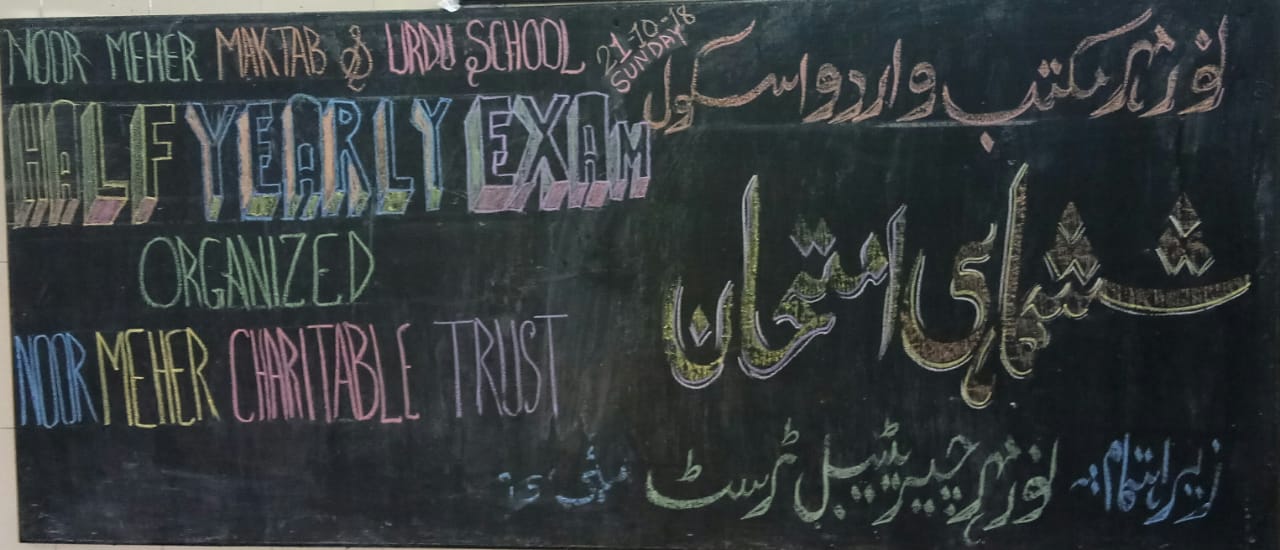 NOOR MEHER MAKTAB & URDU SCHOOL
21-10-18
SUNDAY
HALF YEARLY EXAM
ORGANIZED
NOOR MEHER CHARITABLE TRUST
نور مہر مکتب و اردو اسکول
ششماہی امتحان
زیر اہتمام:۔ نور مہر چیریٹیبل ٹرسٹ